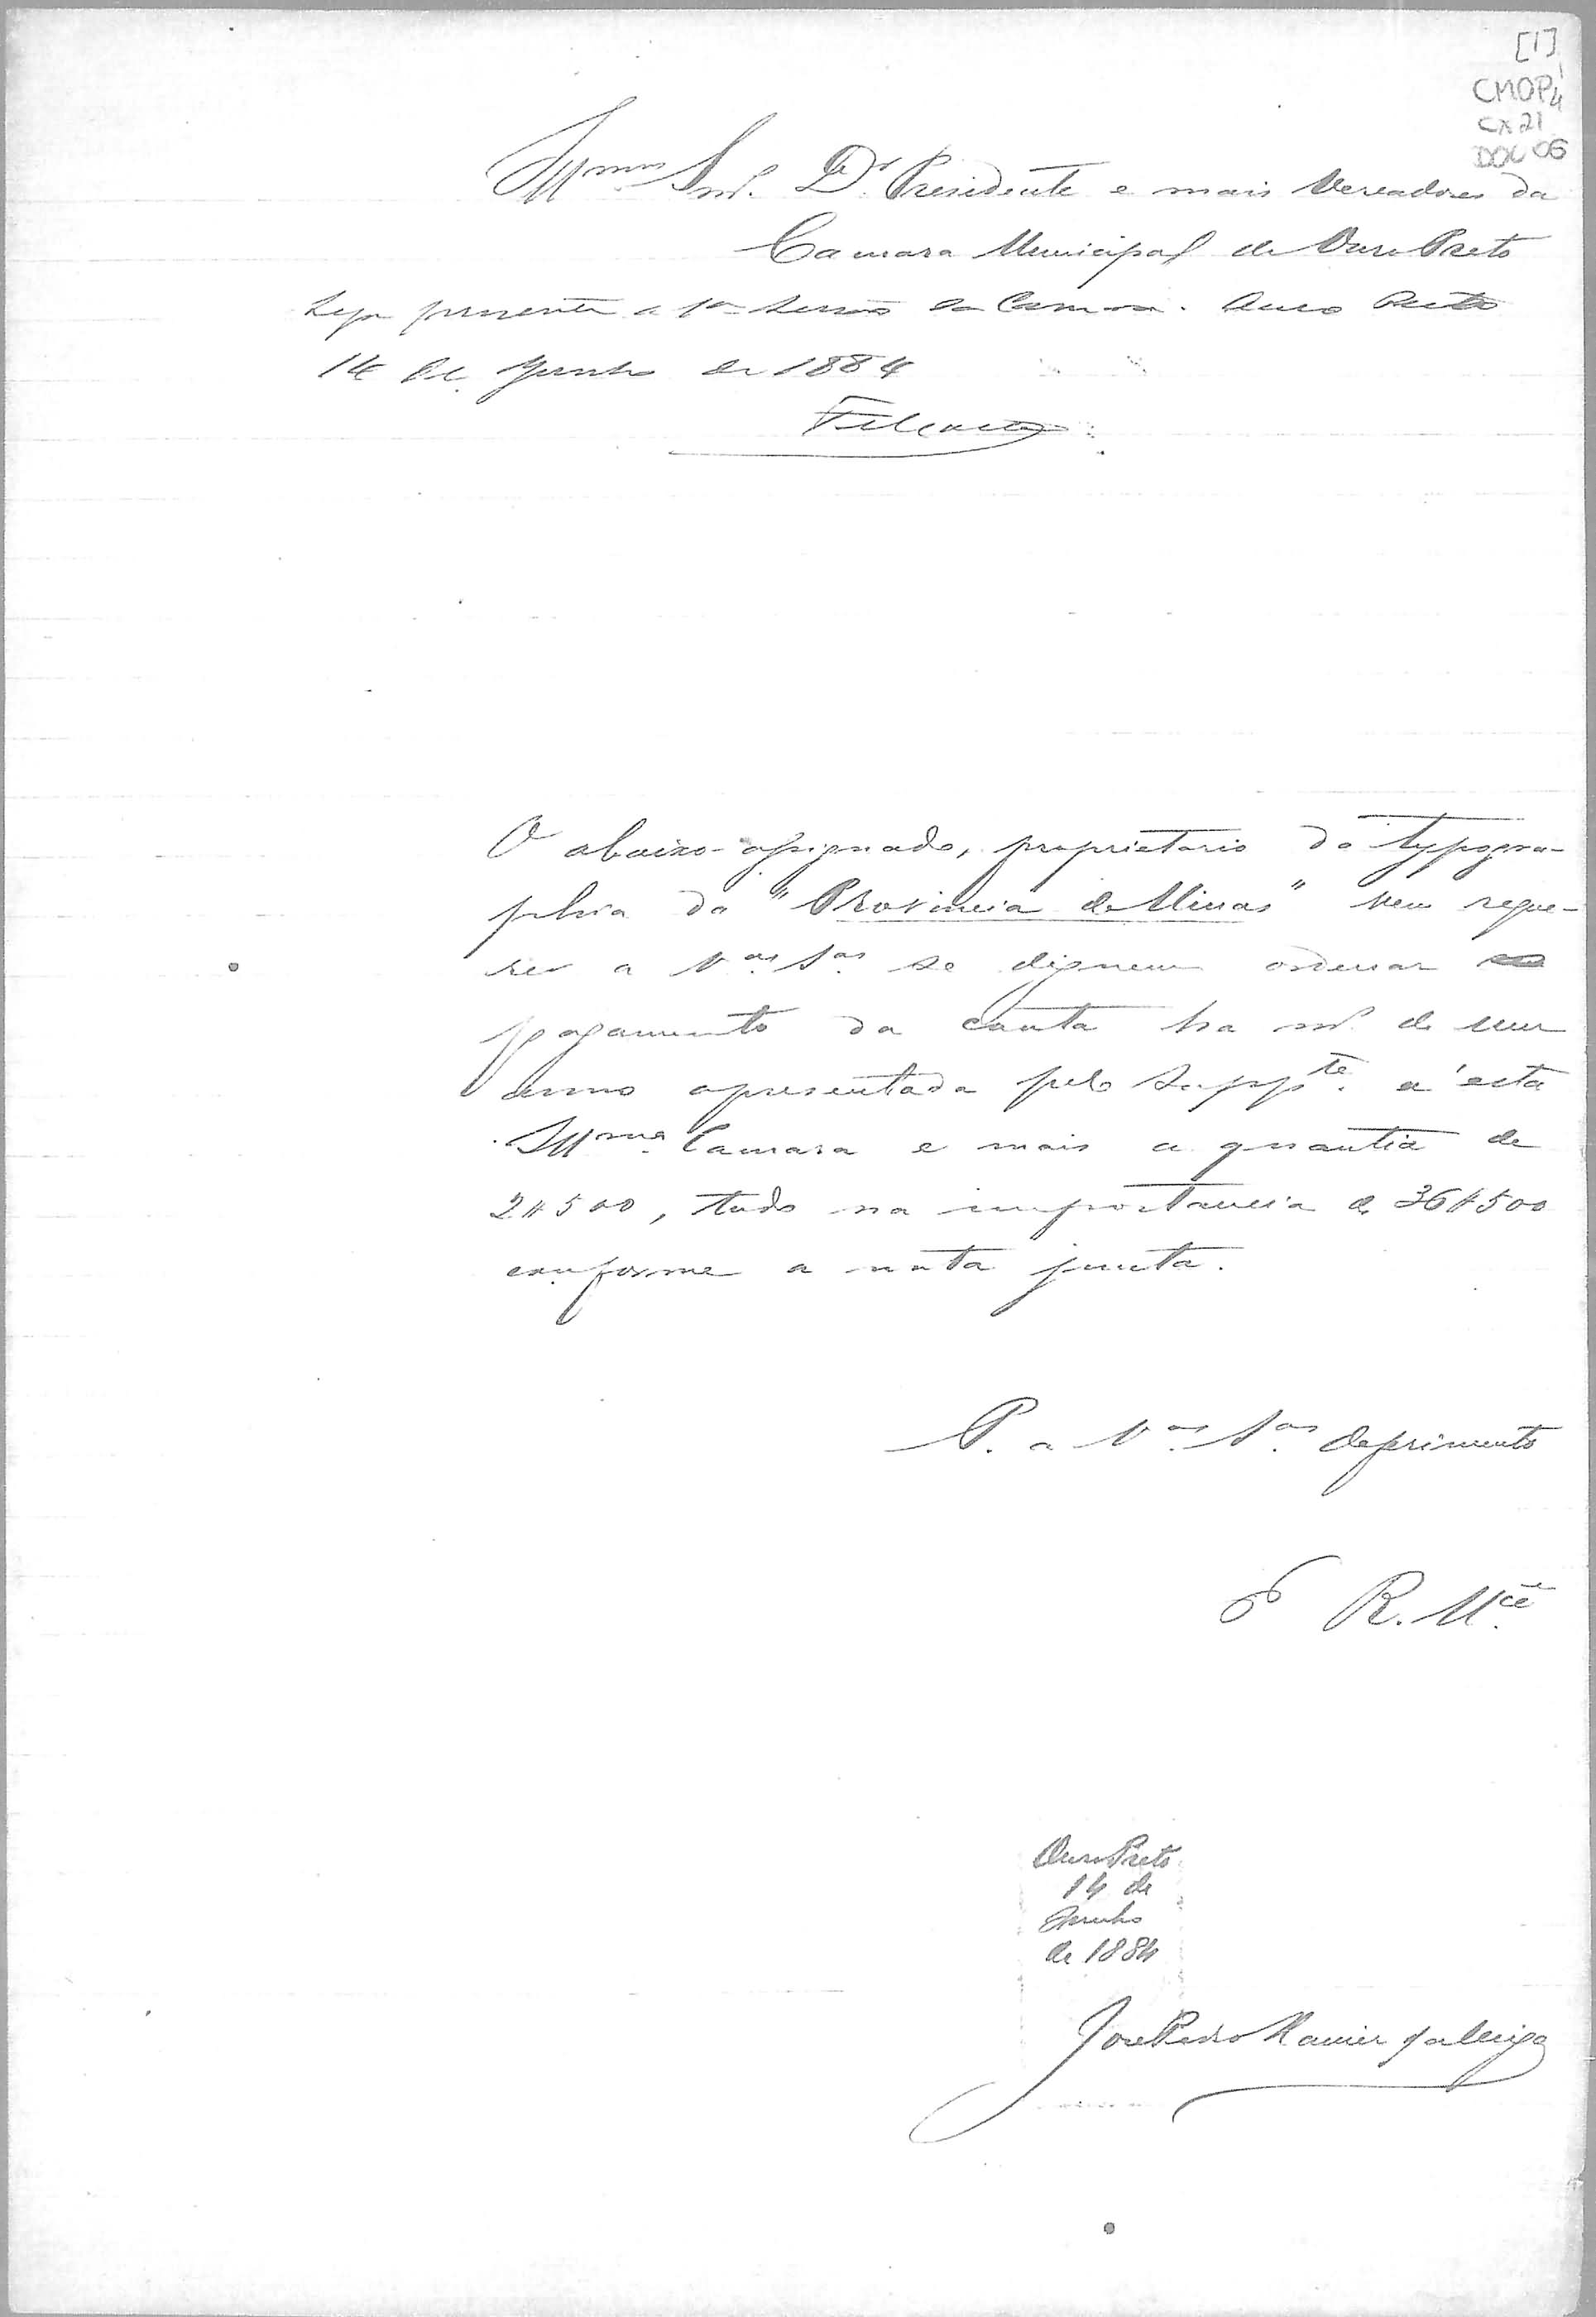 [1]
CMOP
CX 21
DOC 06
Ill.mos Snr. Dr. Presidente e mais Vereadores da
Camara Municipal de Ouro Preto
Seja presente a 1a sessão da Camara. Ouro Preto
14 de Junho de 1884
O abaixo-assignado, proprietario da typogra-
phia da "Provincia de Minas" vem reque-
rer a V.as S.as se dignem ordenar o
pagamento da conta ha de um
anno apresentada pelo Supp.te á esta
Ill.ma Camara e mais a quantia de
2$500, tudo na importancia de 36$500
conforme a nota junta.
P. a V.as S.as deferimento
E R. M.ce
Ouro Preto
14 de
Junho
de 1884
José Pedro Xavier da Veiga